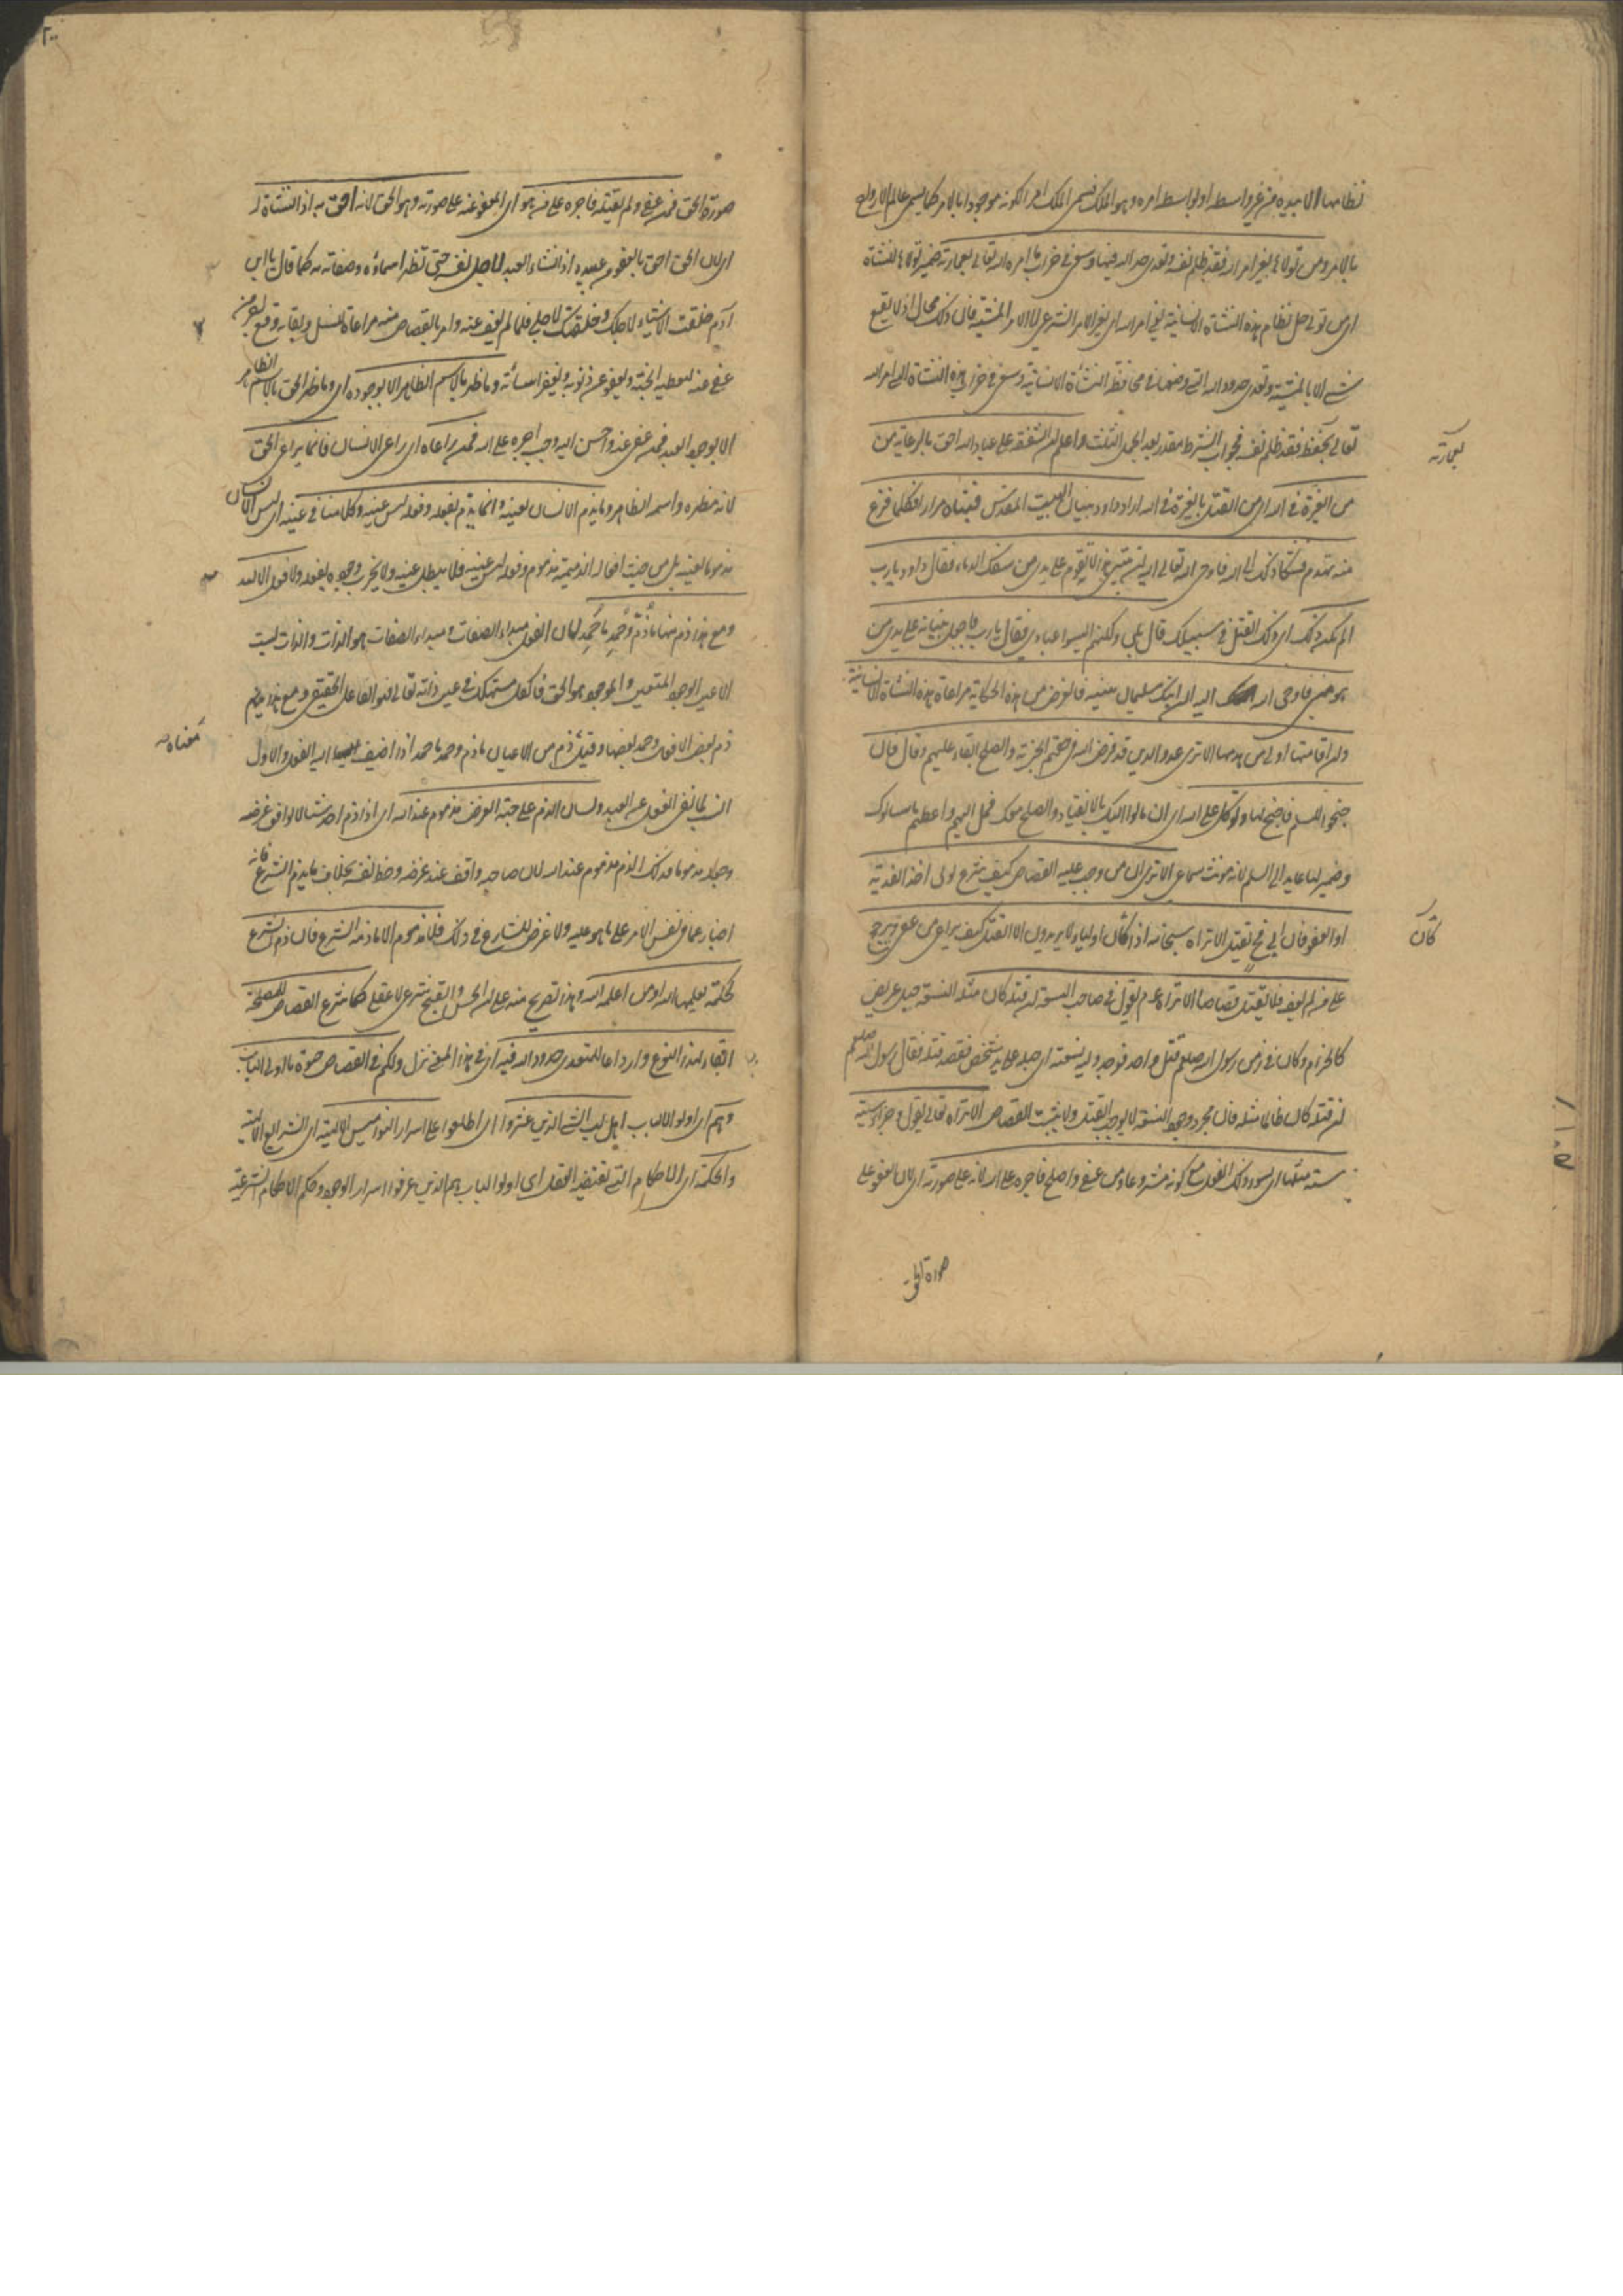 نظامها الا بيده من غير واسطه او بواسطه امره وهو الملك فسمى الملك امرا لكونه موجودا بالامر كما يسمى عالم الارواح
بالامر ومن تولاها بغير امر الله فقد ظلم نفسه وتعدى حد الله فيها وسعى فى خراب ما امره الله تعالى بعمارته ضمير تولاها للنشأة
اى من تولى حل نظام هذه النشأة الانسانية بغير امر الله اى بغير الامر الشرعى لا الامر بالمشية فان ذلك محال اذ لا يقع
شى الا بالمشية وتعدى حدود الله التى وضعها فى محافظة النشأة الانسانية وسعى فى خراب هذه النشأة التى امر الله
تعالى بحفظها فقد ظلم نفسه فجواب الشرط مقدر بعد الجمل الثلث واعلم ان الشفقة على عباد الله احق بالرعاية من
من الغيرة فى الله اى من القتل بالغيرة فى الله اراد داود بنيان البيت المقدس فبناه مرارا فكلما فرغ
منه تهدم فشكا ذلك الى الله فاوحى الله تعالى اليه ان بيتى هذا لا يقوم على يدى من سفك الدماء فقال داود يا رب
الم يكن ذلك اى ذلك القتل فى سبيلك قال بلى ولكنهم اليسوا عبادى فقال يا رب فاجعل بنيانه على يدى من
هو منى فاوحى الله اليه ان ابنك سليمان يبنيه فالغرض من هذه الحكاية مراعاة هذه النشأة الانسانية
وان اقامتها اولى من هدمها الا ترى عدو الدين قد فرض الله فى حقهم الجزية والصلح ابقاء عليهم وقال فان
جنحوا للسلم فاجنح لها وتوكل على الله اى ان مالوا اليك بالانقياد والصلح معك فمل اليهم واعطهم ما سالوك
وضمير لها عايد الى السلم لانه مونث سماعى الا ترى ان من وجب عليه القصاص كيف شرع لولى اخذ الفدية
او العفو فان ابى فح يقتل الا تراه سبحانه اذا كان اولياء لا يريدون الا القتل كيف يراعى من عفى ويرجح
على من لم يعف فلا يقتل قصاصا الا تراه عم يقول فى صاحب النسعة ان قتله كان مثله النسعة حبل عريض
كالحزام وكان فى زمن رسول الله صلعم قتل واحد فوجد وليه نسعته اى حبله على يد شخص فقصد قتله فقال رسول الله صلعم
ان قتله كان ظالما مثله فان مجرد وجود النسعة لا يوجب القتل ولا يثبت القصاص الا تراه تعالى يقول وجزاء سيئة
سيئة مثلها اى يسوء ذلك الفعل مع كونه مشروعا ومن عفى واصلح فاجره على الله لانه على صورته اى لان العفو على
صورة الحق
بعمارته
كان
صورة الحق فمن عفى ولم يقتله فاجره على من هو اى المعفو عنه على صورته وهو الحق لانه احق به اذ النشأة له
اى لان الحق احق بالعفو من عبيده اذ انشاء العبد لاجل نفسه حتى تظهر اسماؤه وصفاته به كما قال يا ابن
آدم خلقت الاشياء لاجلك وخلقتك لاجلى فلما لم يعف عنه وامر بالقصاص منه مراعاة للنسل وبقاء وقوع
عفى عنه ليعطيه الجنة ويعفو عن ذنوبه ويغفر اسائته وما ظهر بالاسم الظاهر الا بوجوده اى وما ظهر الحق بالاسم الظاهر
الا بوجود العبد فمن عفى عنه واحسن اليه وجب اجره على الله فمن راعاه اى راعى الانسان فانما يراعى الحق
لانه مظهره واسمه الظاهر وما يذم الانسان لعينه وانما يذم لفعله وفعله ليس عينه وكلامنا فى عينه اى ليس الانسان
مذموما لعينه بل من حيث افعاله الذميمة مذموم وفعله ليس عينه فلا يبطل عينه ولا يخرب وجوده بفعله ولا فعل الا لله
ومع هذا ذم منها ما ذُمّ وحُمِد ما حُمِد لان الفعل مبداء الصفات ومبداء الصفات هو الذات والذات ليست
الا عين الوجود المتعين والموجود هو الحق فالكل مستهلك فى عين ذاته تعالى فهو الفاعل الحقيقى ومع هذا
ذم بعض الافعال وحمد بعضها وقيل ذم من الاعيان ما ذم وحمد ما حمد اذا اضيف اليه الفعل والاول
انسب لما نفى الفعل عن العبد ولسان الذم على جهة الغرض مذموم عند الله اى اذا ذم احد شيئا لا يوافق غرضه
وجعله مذموما فذلك الذم مذموم عند الله لان صاحبه واقف عند غرضه وحظ نفسه بخلاف ما يذم الشرع فانه
اخبار عما فى نفس الامر على ما هو عليه ولا غرض للشارع فى ذلك فلا مذموم الا ما ذمه الشرع فان ذم الشرع
لحكمة يعلمها الله او من اعلمه الله وهذا تصريح منه على ان الحسن والقبح شرعى لا عقلى كما شرع القصاص للمصلحة
ابقاء لهذا النوع وارداعا للمتعدى حدود الله فيه اى فى هذا المعنى نزل ولكم فى القصاص حيوة يا اولى الالباب
وهم اى اولو الالباب اهل لب الشى الذين عثروا اى اطلعوا على اسرار النواميس الالهية اى الشرايع الالهية
والحكمة اى الاحكام التى تقتضيها العقل اى اولو الالباب هم الذين عرفوا اسرار الوجود وحكم الاحكام الشرعية
معناه